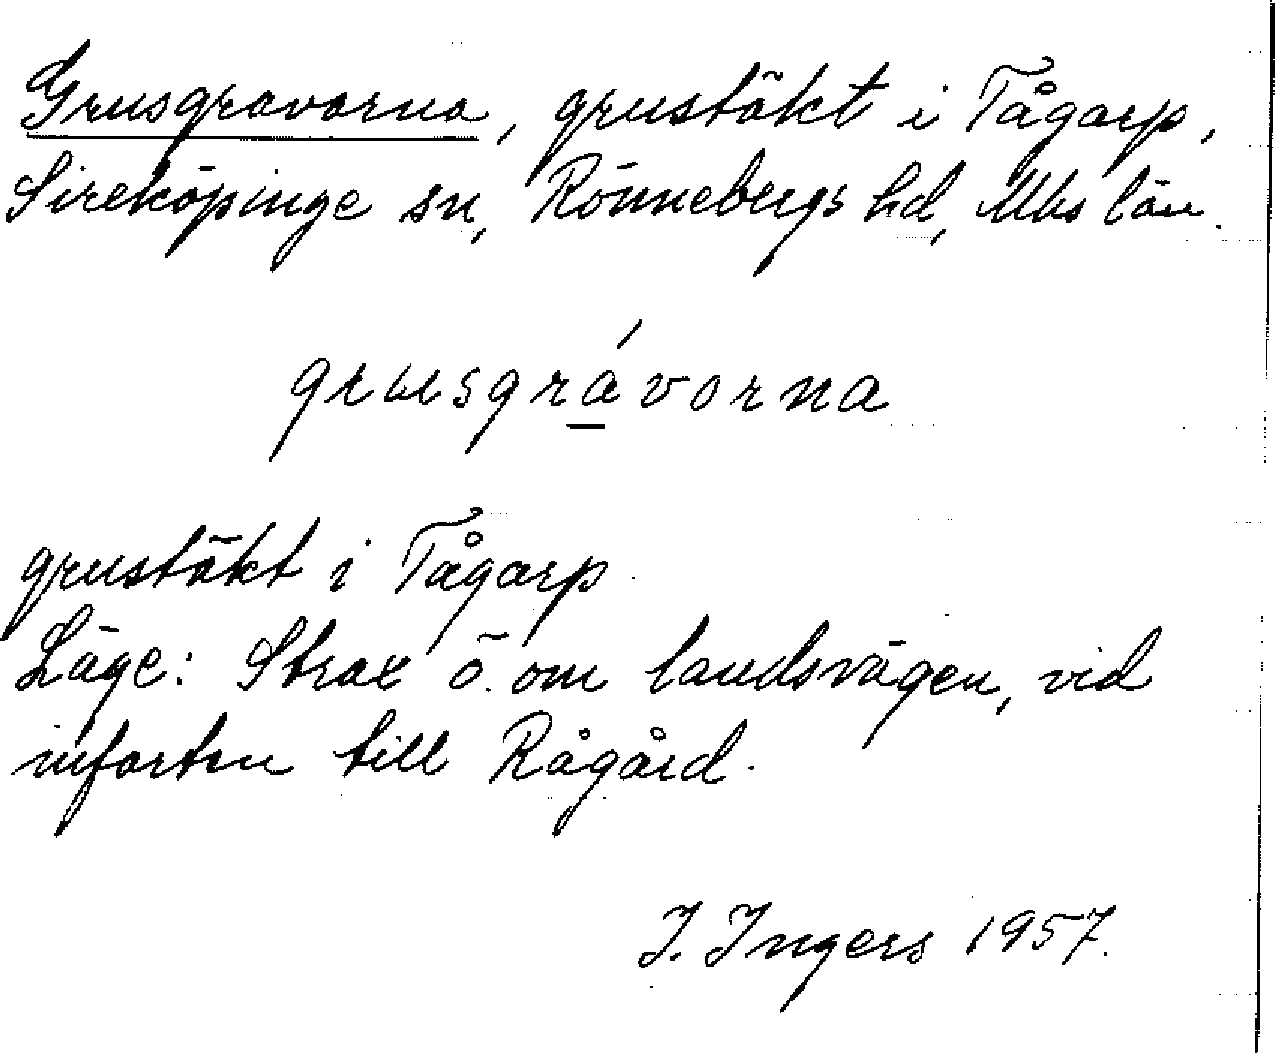 Grusgravorna, grustäkt i Tågarp,
Sireköpinge sn, Rönnebergs hd, Mhs län.
grusgrávorna
grustäkt i Tågarp
Läge: Strax ö. om landsvägen, vid
infarten till Rågård.
I. Ingers 1957.